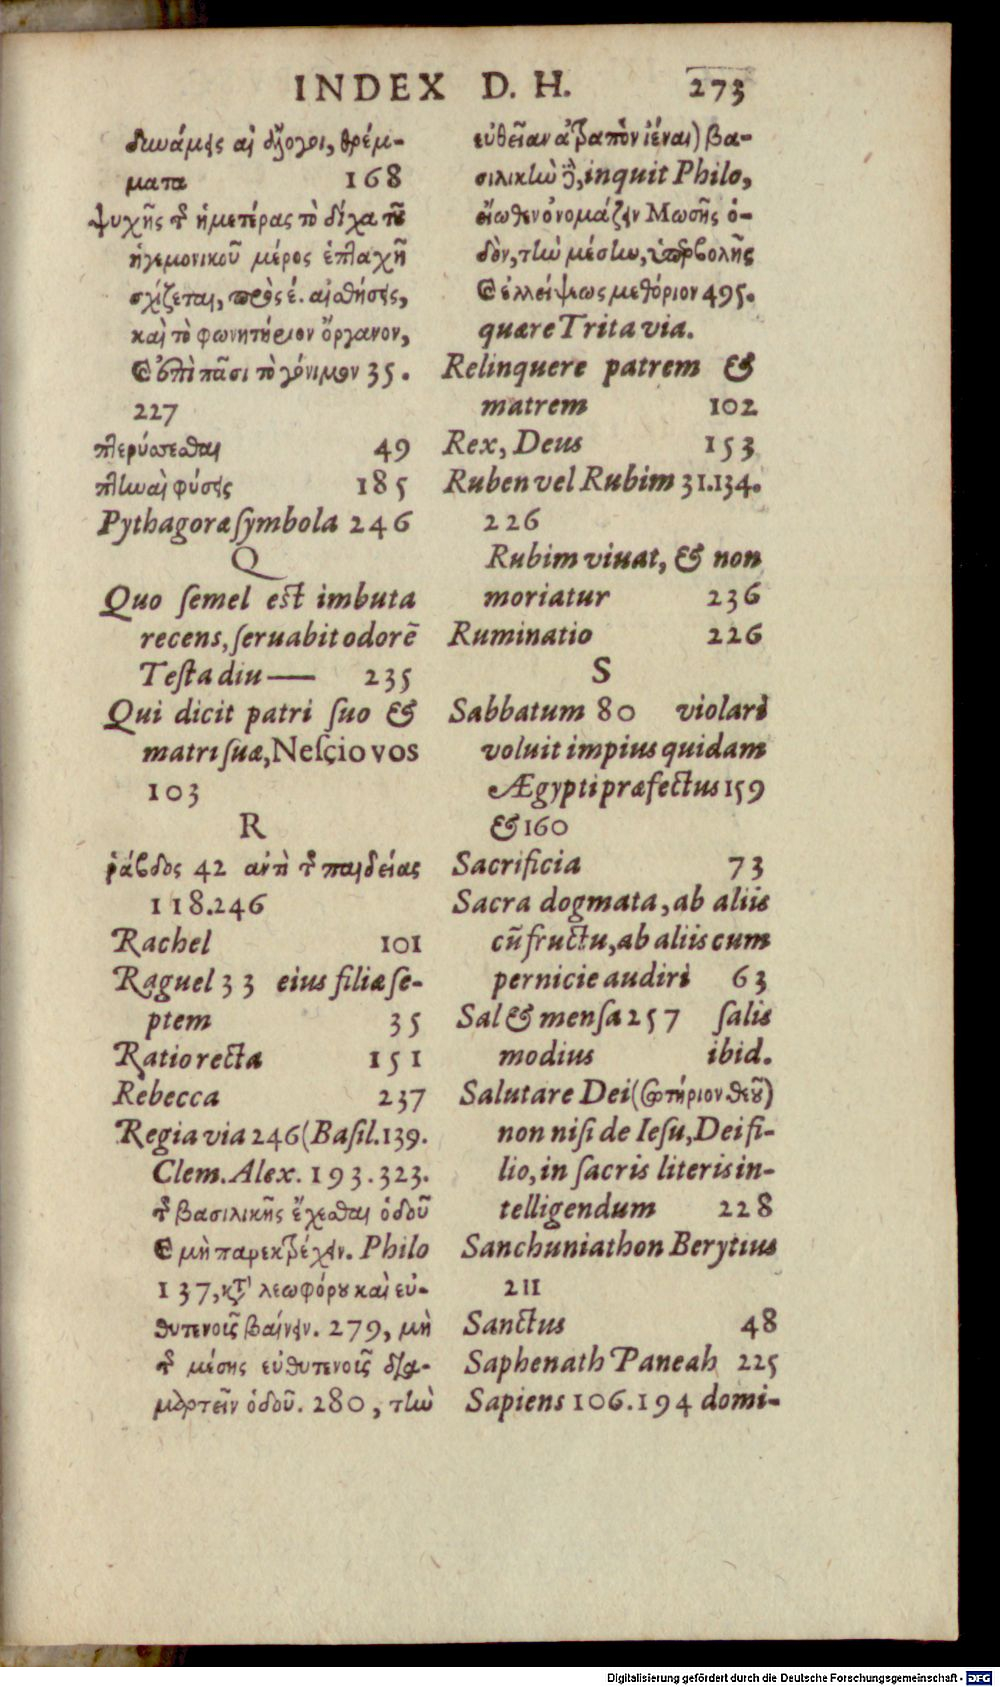 INDEX D. H. 273
δυνάμεις αἱ ἄλογοι, θρέμ-
ματα 168
ψυχῆς τῆς ἡμετέρας τὸ δίχα τοῦ
ἡγεμονικοῦ μέρος ἑπταχῆ
σχίζεται, πρὸς έ. αἰσθήσεις,
καὶ τὸ φωνητήριον ὄργανον,
καὶ ἐπὶ πᾶσι τὸ γόνιμον 35.
227
πτερύσσεσθαι 49
πτηναὶ φύσεις 185
Pythagoræ ſymbola 246
Q
Quo ſemel est imbuta
recens, ſeruabit odorē
Teſta diu— 235
Qui dicit patri ſuo &
matri ſuæ, Neſcio vos
103
R
ῥάβδος 42 αὐτὴ τῆς παιδείας
118.246
Rachel 101
Raguel 33 eius filiæ ſe-
ptem 35
Ratio recta 151
Rebecca 237
Regia via 246 (Baſil. 139.
Clem. Alex. 193.323.
τῆς βασιλικῆς ἔχεσθαι ὁδοῦ
καὶ μὴ παρεκτρέχειν. Philo
137, κτ' λεωφόρου καὶ εὐ-
θυτενοῦς βαίνειν. 279, μὴ
τῆς μέσης εὐθυτενοῦς δια-
μαρτεῖν ὁδοῦ. 280, τὴν
εὐθεῖαν ἀτραπὸν ἰέναι) βα-
σιλικὴν δὲ, inquit Philo,
εἴωθεν ὀνομάζειν Μωσῆς ὁ-
δὸν, τὴν μέσην, ὑπερβολῆς
καὶ ἐλλείψεως μεθόριον 495.
quære Trita via.
Relinquere patrem &
matrem 102
Rex, Deus 153
Ruben vel Rubim 31.134.
226
Rubim viuat, & non
moriatur 236
Ruminatio 226
S
Sabbatum 80 violari
voluit impius quidam
Ægypti præfectus 159
& 160
Sacrificia 73
Sacra dogmata, ab aliis
cū fructu, ab aliis cum
pernicie audiri 63
Sal & menſa 257 ſalis
modius ibid.
Salutare Dei (σωτήριον θεοῦ)
non niſi de Ieſu, Dei fi-
lio, in ſacris literis in-
telligendum 228
Sanchuniathon Berytius
211
Sanctus 48
Saphenath Paneah 225
Sapiens 106.194 domi-
Digitalisierung gefördert durch die Deutsche Forschungsgemeinschaft - DFG